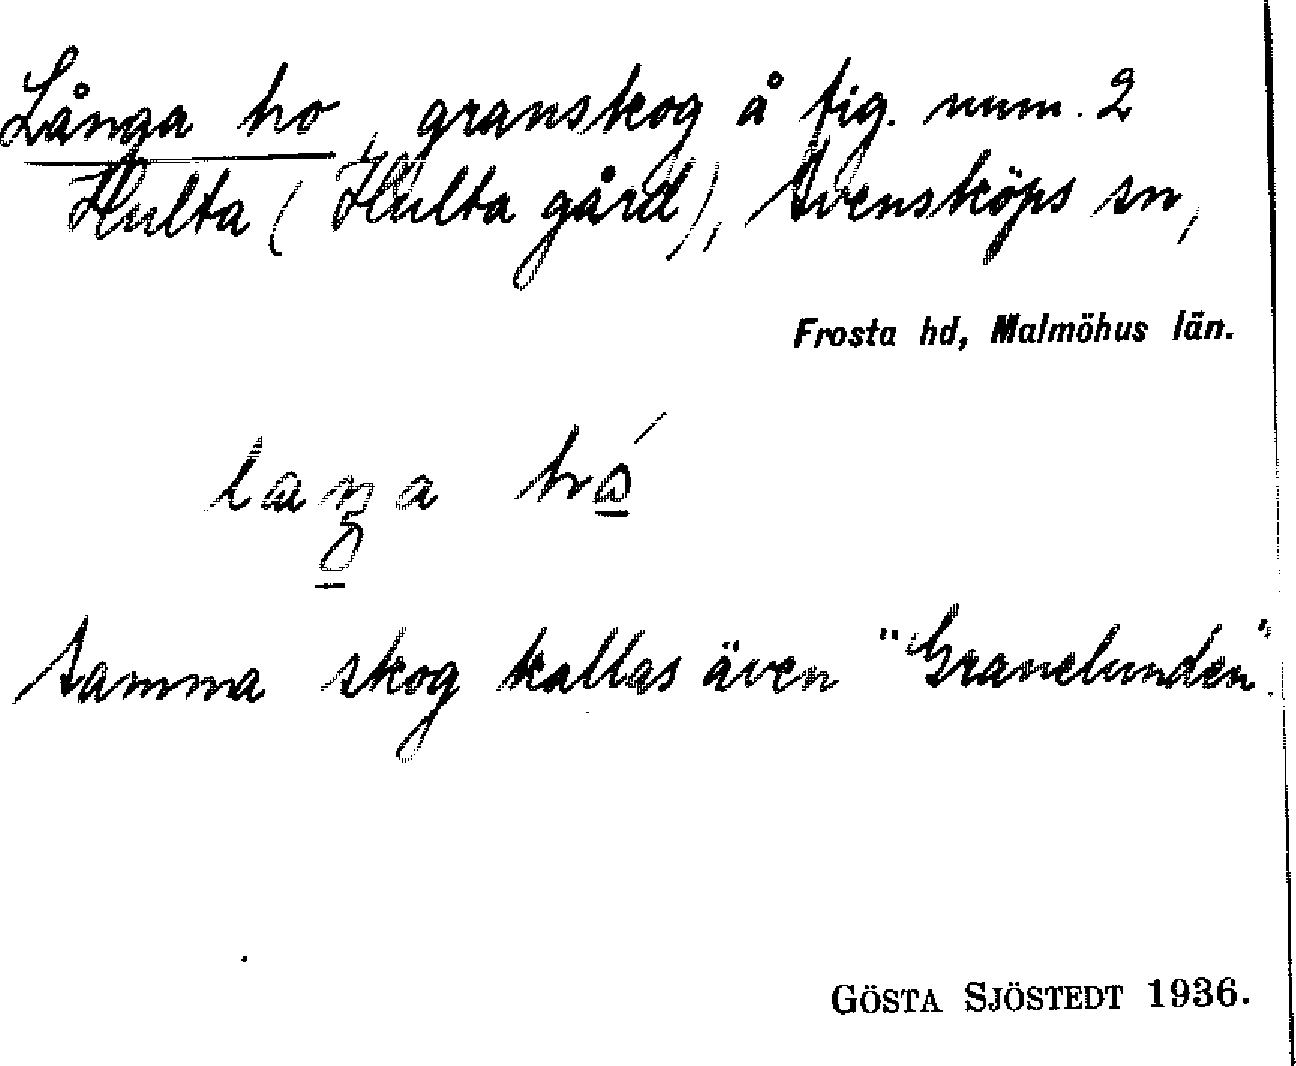 Långa ho, granskog å fig. num. 2
Hulta (Hulta gård), Svensköps sn,
Frosta hd, Malmöhus län.
Samma skog kallas även "Granelunden".
GÖSTA SJÖSTEDT 1936.